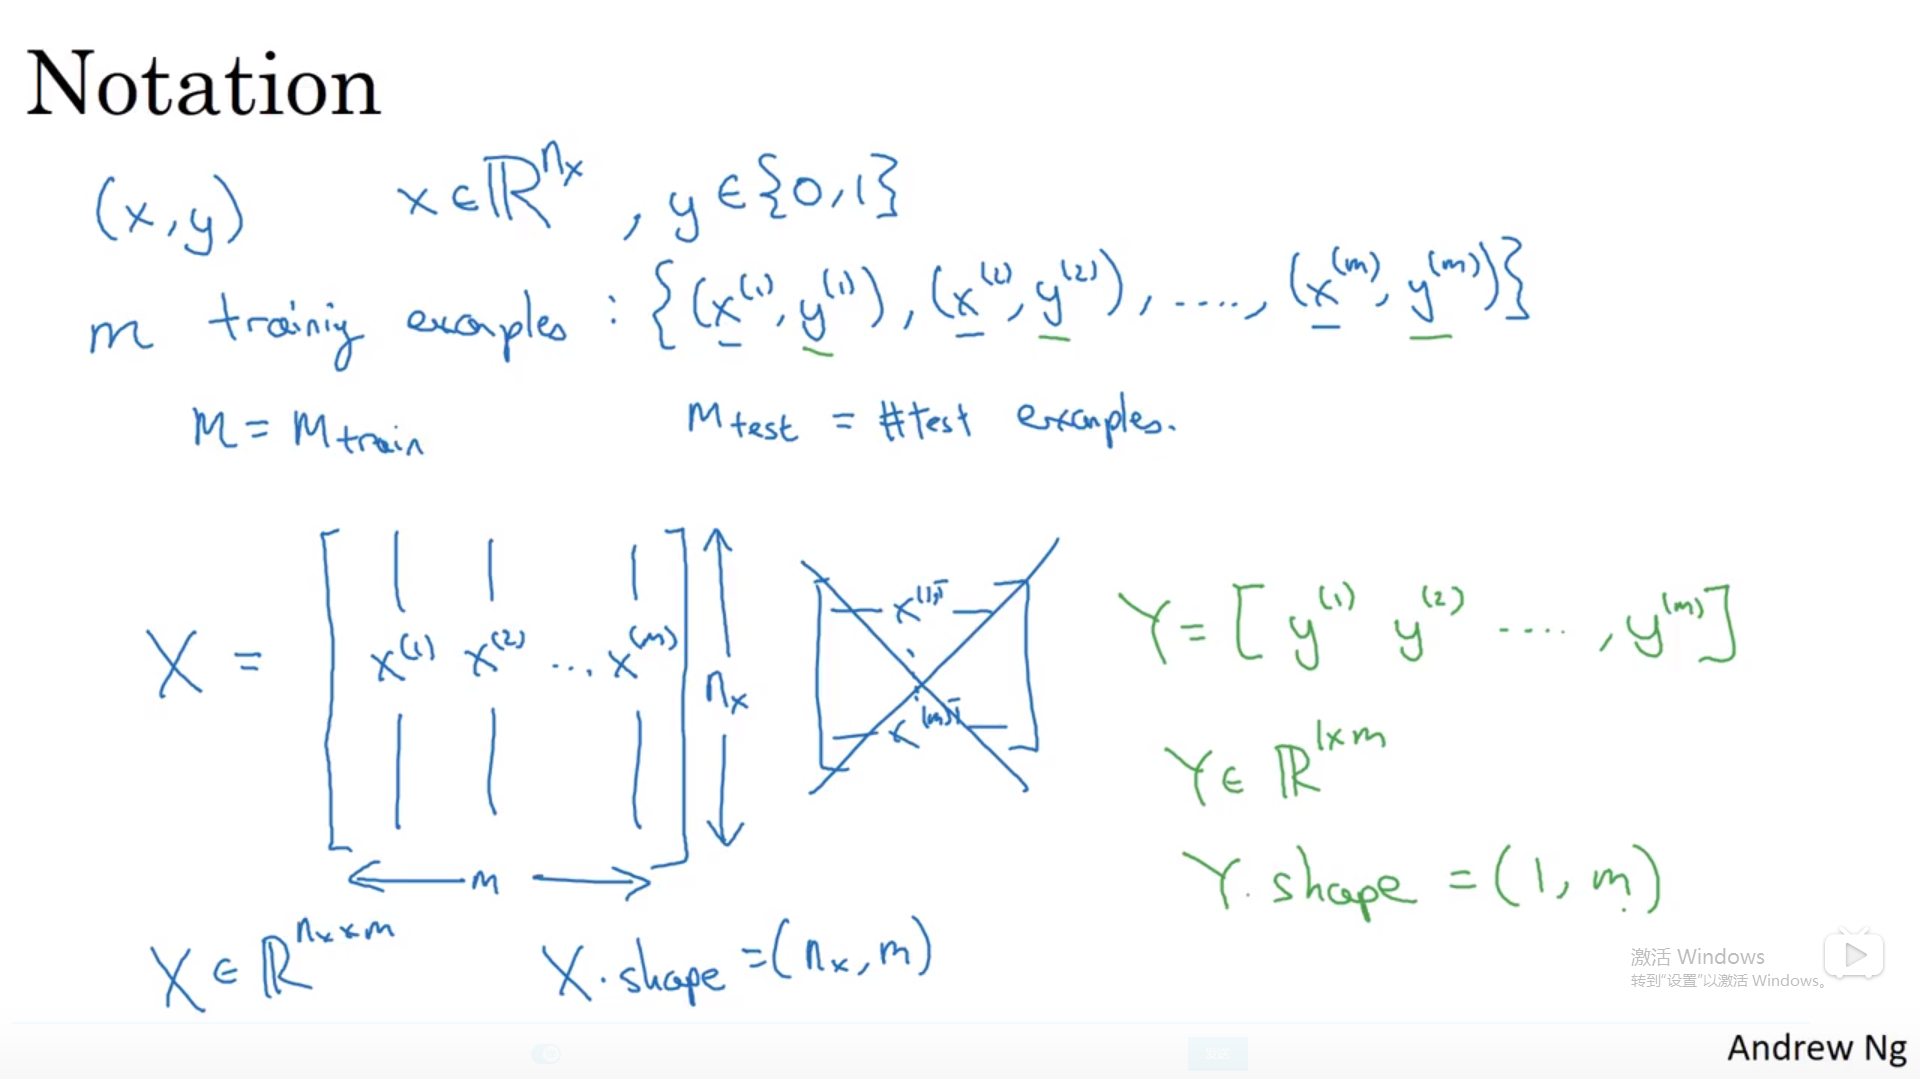 Notation
(x, y)   x ∈ ℝ^{n_x}, y ∈ {0, 1}
m training examples : {(x^{(1)}, y^{(1)}), (x^{(2)}, y^{(2)}), ....., (x^{(m)}, y^{(m)})}
M = M_{train}   M_{test} = #test examples.
X = [x^{(1)} x^{(2)} ... x^{(m)}]
n_x
m
x^{(1)T}
x^{(m)T}
X ∈ ℝ^{n_x × m}   X.shape = (n_x, m)
Y = [y^{(1)} y^{(2)} ...., y^{(m)}]
Y ∈ ℝ^{1×m}
Y.shape = (1, m)
激活 Windows
转到“设置”以激活 Windows。
Andrew Ng